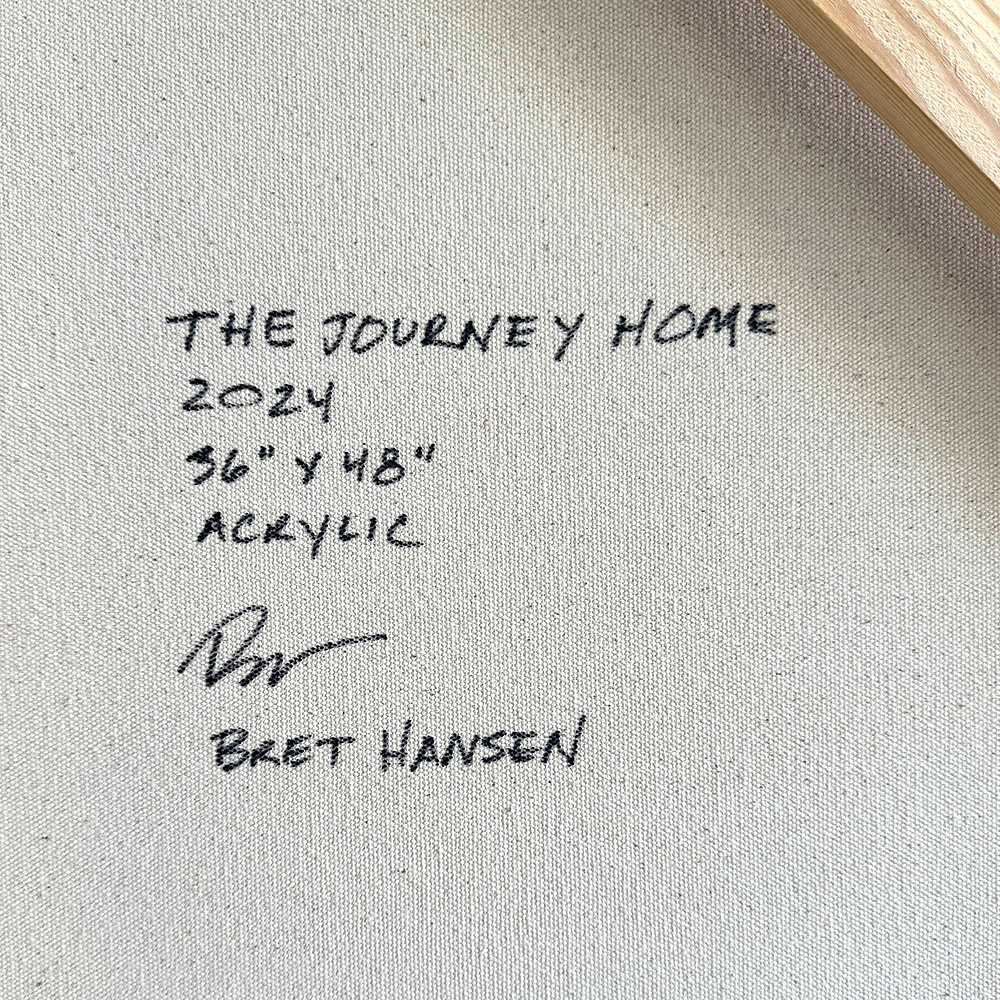 THE JOURNEY HOME
2024
36" X 48"
ACRYLIC
BRET HANSEN